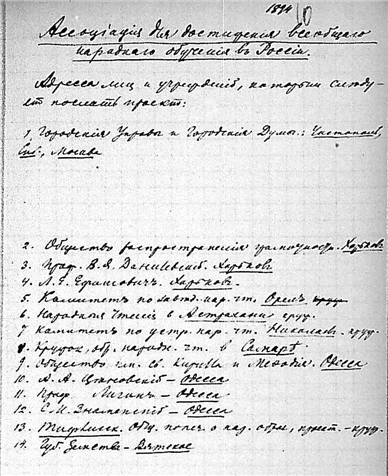 1894
10
Ассоціація для достиженія всеобщаго
народнаго обученія въ Россіи.
Адресса лиц и учрежденій, которым следу-
ет послать проект:
1. Городскія Управы и Городскія Думы: Чистополь,
Спб., Москва
2. Общество распространенія грамотности. Харьков
3. Проф. В. Я. Данилевскій. Харьков
4. Л. Е. Ефимович. Харьков.
5. Комитет по нар. чт. Орел.
6. Народныя чтенія в Астрахани
7. Комитет по устр. нар. чт. Николаев.
8. Кружок, обр. народн. чт. в Самаре
9. Общество им. св. Кирилла и Мефодія. Одесса
10. А. А. – Одесса
11. Проф. Лигин – Одесса
12. С. И. Знаменскій – Одесса
13. Тифлиск. Общ. попеч. о нар. образ.
14. Губ. Земства – Вятское